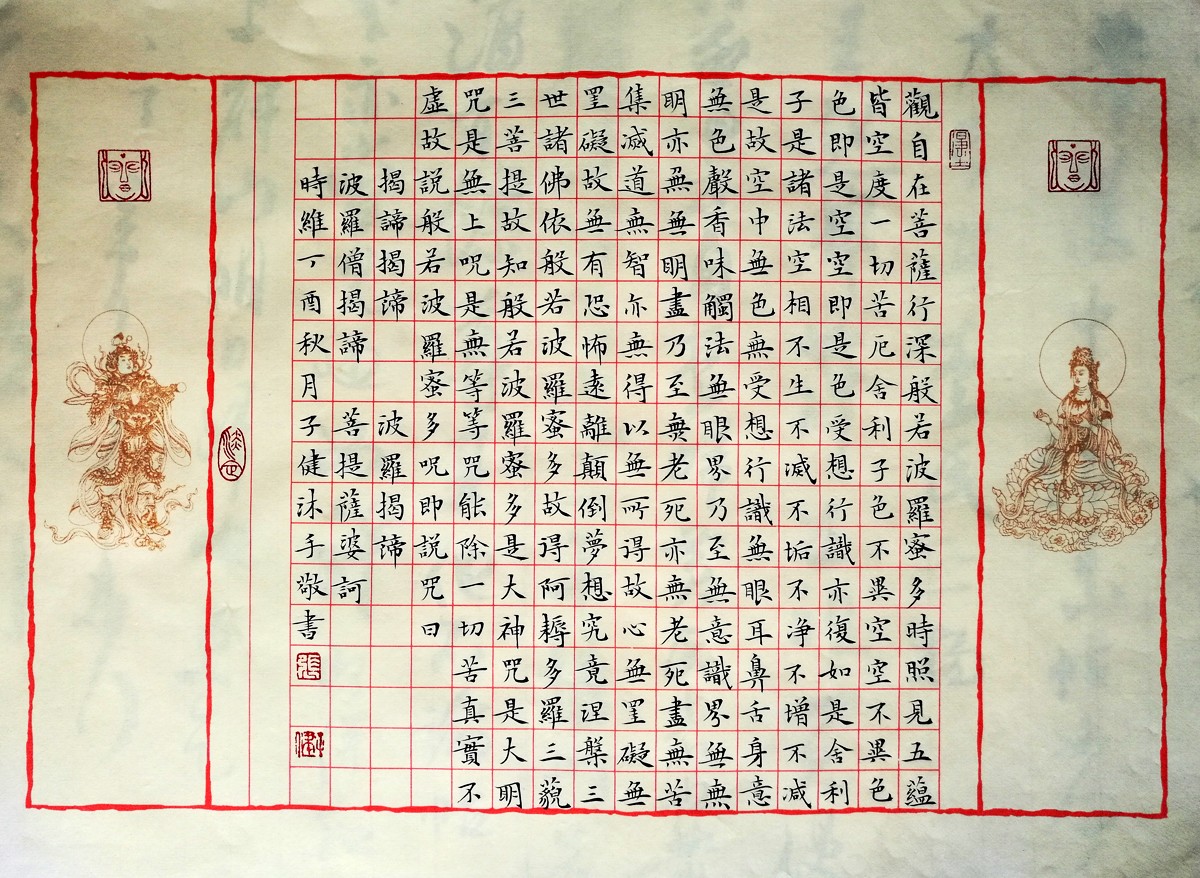 觀自在菩薩行深般若波羅蜜多時照見五蘊
皆空度一切苦厄舍利子色不異空空不異色
色即是空空即是色受想行識亦復如是舍利
子是諸法空相不生不滅不垢不净不增不減
是故空中無色無受想行識無眼耳鼻舌身意
無色聲香味觸法無眼界乃至無意識界無無
明亦無無明盡乃至無老死亦無老死盡無苦
集滅道無智亦無得以無所得故心無罣礙無
罣礙故無有恐怖遠離顛倒夢想究竟涅槃三
世諸佛依般若波羅蜜多故得阿耨多羅三藐
三菩提故知般若波羅蜜多是大神咒是大明
咒是無上咒是無等等咒能除一切苦真實不
虛故說般若波羅蜜多咒即說咒曰
揭諦揭諦 波羅揭諦
波羅僧揭諦 菩提薩婆訶
時維丁酉秋月子健沐手敬書
張